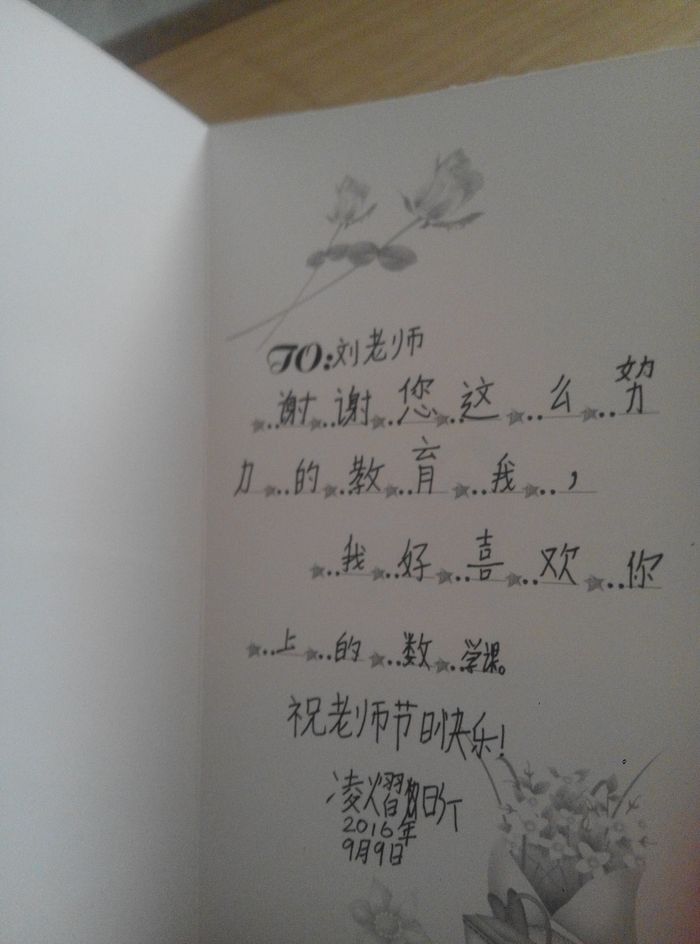 TO:刘老师
谢谢您这么努
力的教育我,
我好喜欢你
上的数学课。
祝老师节日快乐!
凌熠
2016年
9月9日